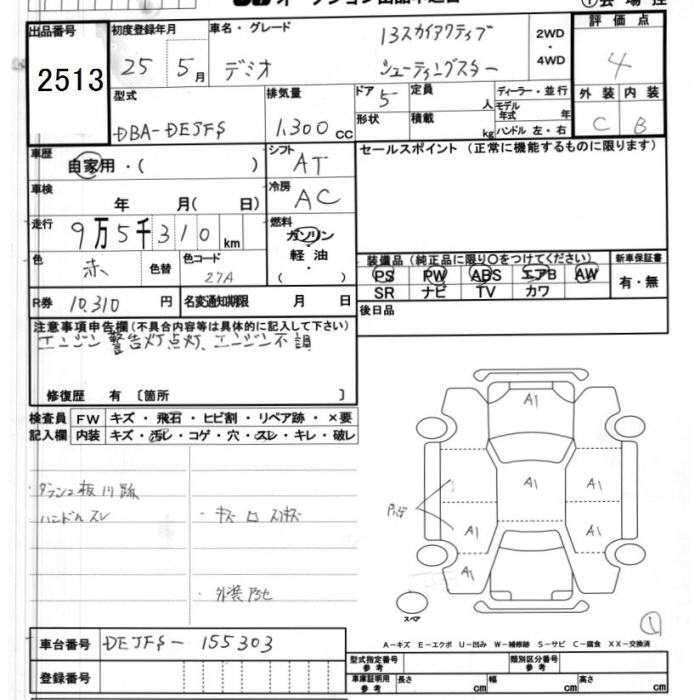 出品番号 2513
初度登録年月 25 5月
車名・グレード デミオ 13スカイアクティブ シューティングスター
2WD ・ 4WD
評価点 4
外装 内装
C B
型式 DBA-DEJFS
排気量 1,300cc
ドア 5
形状
定員 人
積載 kg
ディーラー・並行
モデル年式 年
ハンドル 左・右
車歴 自家用・( )
シフト AT
セールスポイント (正常に機能するものに限ります)
車検 年 月( 日)
冷房 AC
走行 9万5千310km
燃料 ガソリン・軽油・( )
色 赤 色替
色コード 27A
装備品(純正品に限り○をつけてください)
PS PW ABS エアB AW
SR ナビ TV カワ
新車保証書
有・無
R券 10,310円
名変通知期限 月 日
後日品
注意事項申告欄(不具合内容等は具体的に記入して下さい)
エンジン警告灯点灯、エンジン不調
修復歴 有 〔箇所 〕
検査員 FW キズ・飛石・ヒビ割・リペア跡・×要
記入欄 内装 キズ・汚レ・コゲ・穴・スレ・キレ・破レ
ハンドルスレ
A1
A1
A1
A1
A1
A1
A1
スペア
1
車台番号 DEJFS-155303
A-キズ E-エクボ U-凹み W-補修跡 S-サビ C-腐食 XX-交換済
登録番号
型式指定番号 参考
類別区分番号 参考
車庫証明用 参考 長さ cm 幅 cm 高さ cm